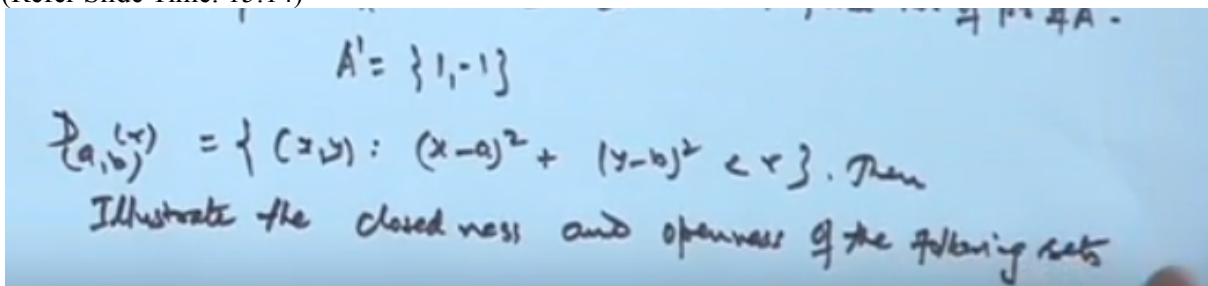 (Refer Slide Time: 15:14)
A' = {1,-1}
D(a,b)(r) = { (x,y) : (x-a)² + (y-b)² < r}. Then
Illustrate the closed ness and openness of the following sets